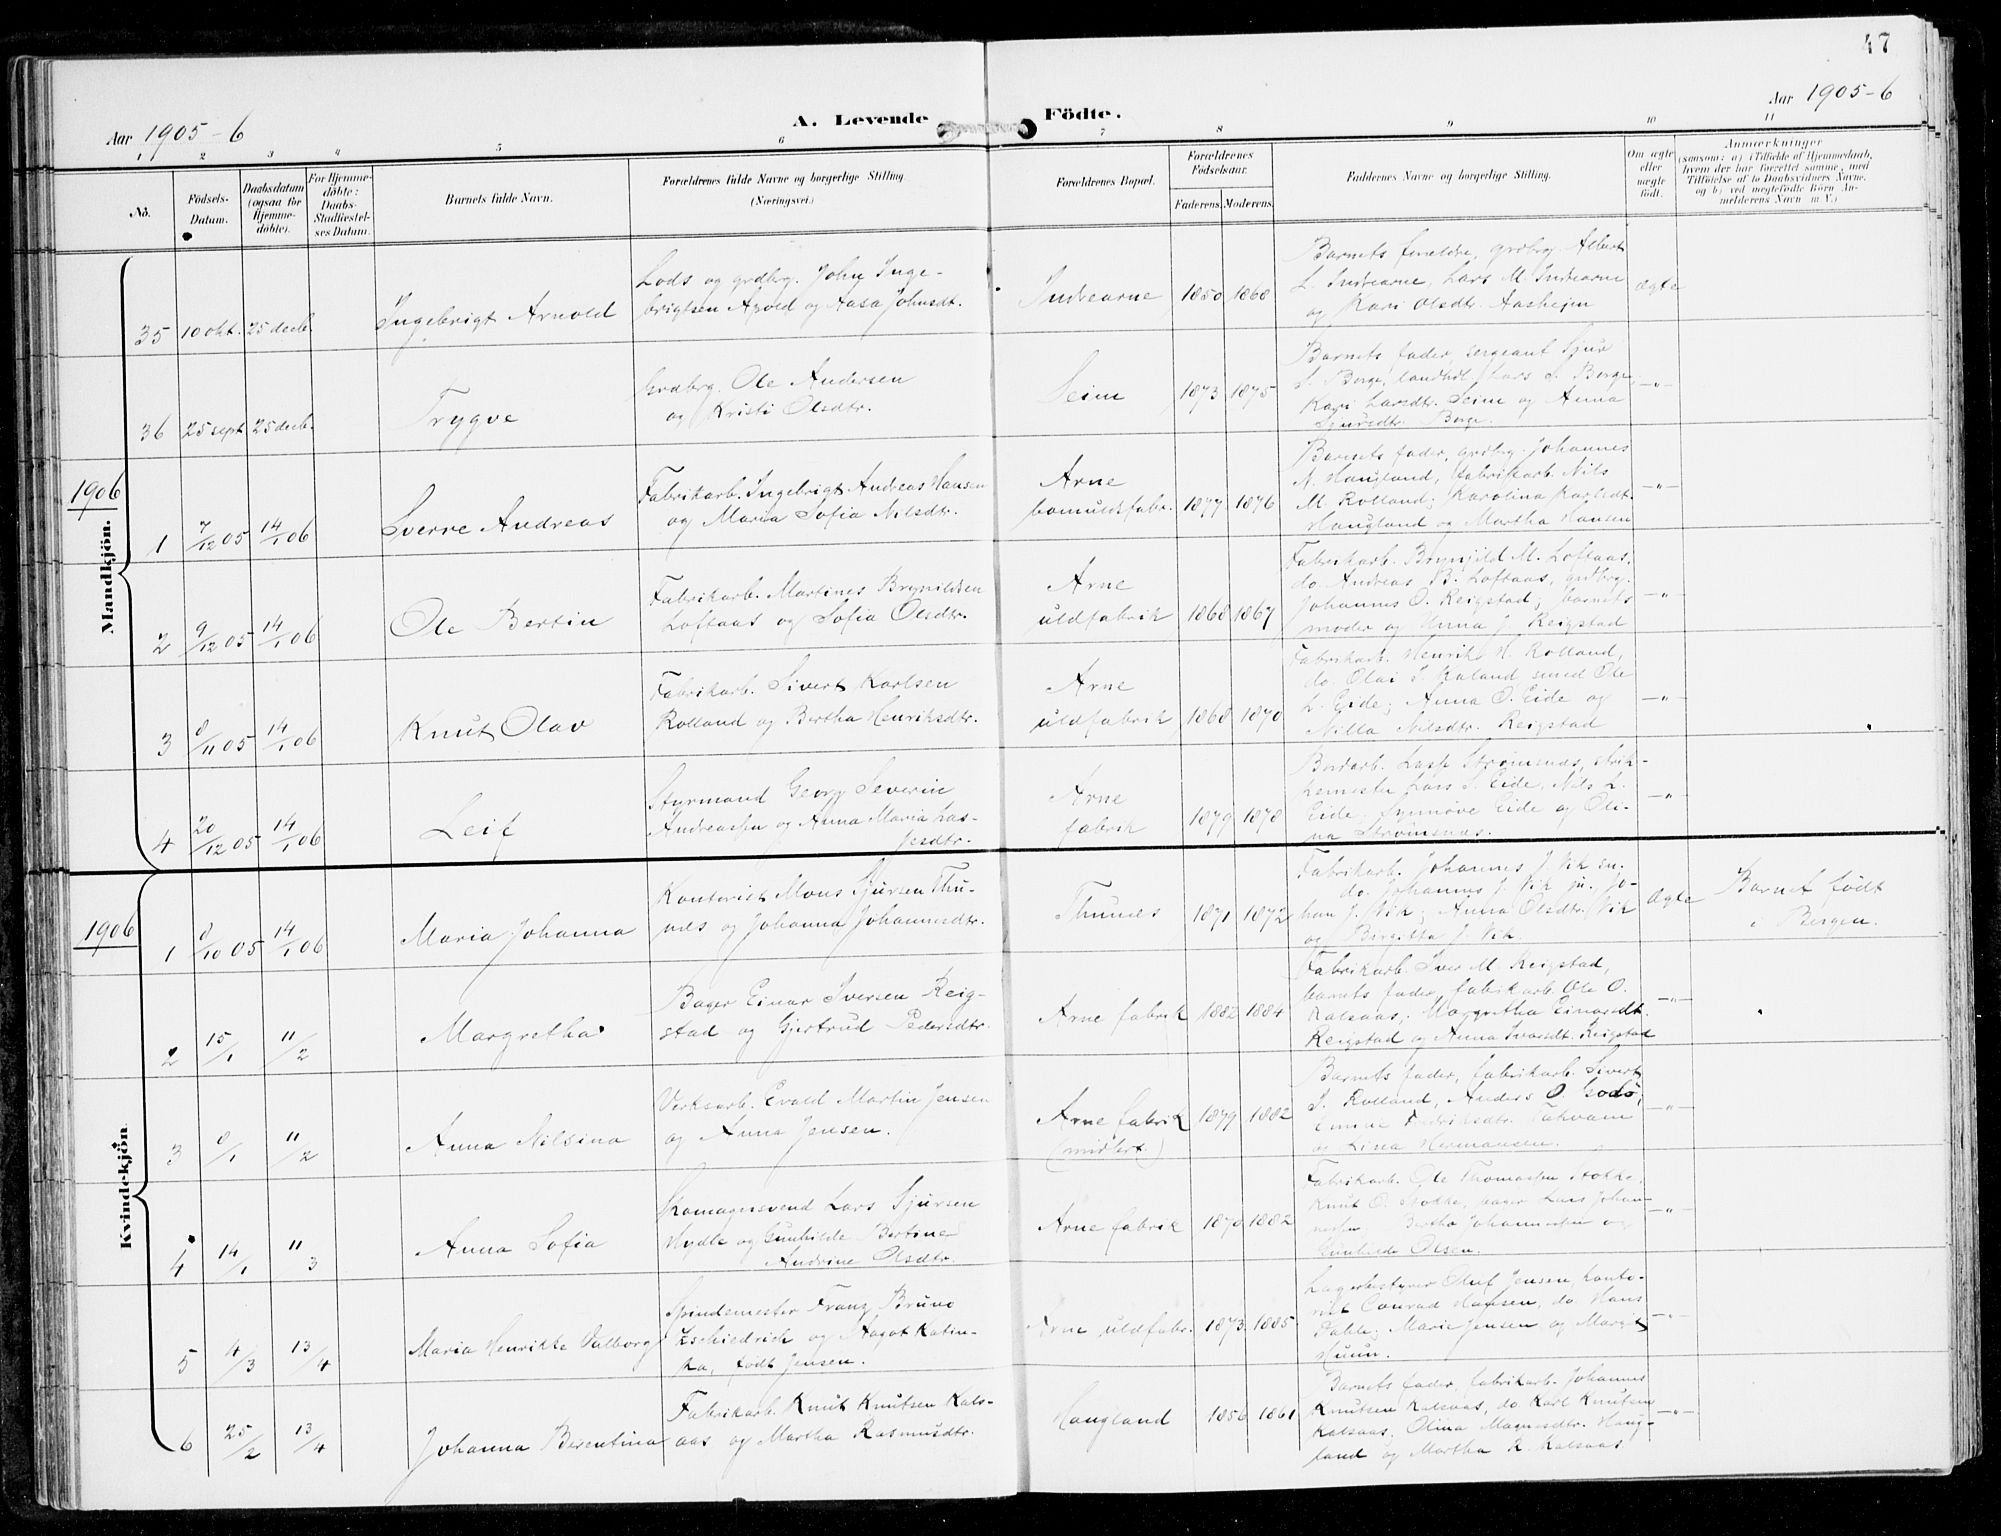 47
Aar 1905-6
A. Levende Födte.
Aar 1905-6
1 2 3 4 5 6 7 8 9 10 11
No.
Födsels-Datum.
Daabsdatum (ogsaa for Hjemmedöbte).
For Hjemmedöbte: Daabs-Stadfæstelses Datum.
Barnets fulde Navn.
Forældrenes fulde Navne og borgerlige Stilling. (Næringsvei.)
Forældrenes Bopæl.
Forældrenes Födselsaar.
Faderens. Moderens.
Faddernes Navne og borgerlige Stilling.
Om ægte eller uægte födt.
Anmærkninger
(saasom: a) i Tilfælde af Hjemmedaab, hvem der har forrettet samme, med Tilföielse af to Daabsvidners Navne, og b) ved uægtefödte Börn Anmelderens Navn m. V.)
Mandkjön.
35 10 okt. 25 decb. Ingebrigt Arnold
Lods og grdbrg. John Inge-
brigtsen Arvold og Aasa Johnsdt.
Indrearne 1850 1868
Barnets forældre, grdbrg Albert
L. Indrearne, Lars M. Indrearne
og Kari Olsdtr. Aasheim
ægte
36 25 sept 25 decb. Trygve
Grdbrg. Ole Andersen
og Kristi Olsdtr.
Seim 1873 1875
Barnets fader, sergeant Sjur
S. Borge, landhdl. Lars S. Borge,
Kari Larsdtr. Seim og Anna
Sjursdtr. Borge.
-"-
1906
1 7/12 05 14/1 06 Sverre Andreas
Fabrikarb. Ingebrigt Andreas Hansen
og Maria Sofia Nilsdtr.
Arne
bomuldsfabr. 1877 1876
Barnets fader, grdbrg. Johannes
N. Haugland, fabrikarb. Nils
M. Rolland; Karolina Karlsdt.
Haugland og Martha Hansen
-"-
2 9/12 05 14/1 06 Ole Bertin
Fabrikarb. Martines Brynildsen
Loftaas og Sofia Olsdtr.
Arne
uldfabrik 1868 1867
Fabrikarb. Brynjild M. Loftaas,
do Andreas B. Loftaas, grdbrg.
Johannes O. Reigstad; barnets
moder og Anna J. Reigstad
-"-
3 8/11 05 14/1 06 Knut Olav
Fabrikarb. Sivert Karlsen
Rolland og Bertha Henriksdtr.
Arne
uldfabrik 1868 1870
Fabrikarb. Henrik H. Rolland,
do. Olai I. Kaland smed Ole
L. Eide; Anna O. Eide og
Nilla Nilsdtr. Reigstad
-"-
4 20/12 05 14/1 06 Leif
Styrmand Georg Severin
Andreassen og Anna Maria Las-
sesdtr.
Arne
fabrik 1879 1878
Bordarb. Lasse Strømsnæs, strik-
kemester Lars S. Eide, Nils L.
Eide; Synnöve Eide og Oli-
na Strømsnæs.
-"-
Kvindekjön
1906
1 8/10 05 14/1 06 Maria Johanna
Kontorist Mons Sjursen Thu-
næs og Johanna Johannesdtr.
Thunes 1871 1872
Fabrikarb. Johannes J. Vik sn.
do. Johannes J. Vik jn. Jo-
han J. Vik; Anna Olsdtr. Vik
og Birgitta J. Vik.
ægte
Barnet født
i Bergen.
2 15/1 11/2 Margretha
Bager Einar Iversen Reig-
stad og Gjertrud Pedersdtr.
Arne fabrik 1882 1884
Fabrikarb. Iver M. Reigstad,
barnets fader, fabrikarb. Ole O.
Kalsaas; Margretha Einarsdt.
Reigstad og Anna Ivarsdt. Reigstad
-"-
3 8/1 11/2 Anna Nilsina
Verksarb. Evald Martin Jensen
og Anna Jensen.
Arne fabrik
(midlert.) 1879 1882
Barnets fader, fabrikarb. Sivert
S. Rolland, Anders O. Godö;
Emma Fredriksdtr. Takvam
og Lina Hermansen.
-"-
4 14/1 11/3 Anna Sofia
Skomagersvend Lars Sjursen
Hydle og Gunhilde Bertine
Andrine Olsdtr.
Arne fabrik 1870 1882
Fabrikarb. Ole Thomassen Stokke,
Knut O. Stokke, bager Lars Johan-
nesen; Bertha Johannesen og
Gunhilda Olsen.
-"-
5 4/3 13/4 Maria Henrikke Valborg
Spindemester Franz Bruno
Zschiedrich og Dagot Katin-
ka, født Jensen.
Arne uldfabr. 1873 1885
Lagerbestyrer Oluf Jensen, konto-
rist Conrad Hansen, do. Hans
Pahle; Marie Jensen og Margit
Huun.
-"-
6 25/2 13/4 Johanna Berentina
Fabrikarb. Knut Knutsen Kals-
aas og Martha Rasmusdtr.
Haugland 1856 1861
Barnets fader, fabrikarb. Johannes
Knutsen Kalsaas, do Karl Knutsen
Kalsaas; Olina Magnesdtr. Haug-
land og Martha K. Kalsaas
-"-